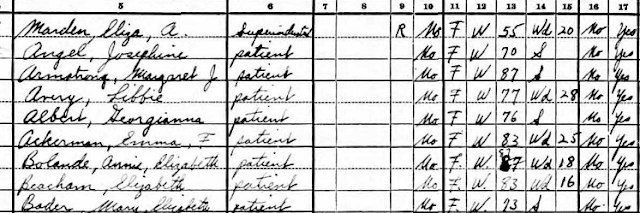 5 6 7 8 9 10 11 12 13 14 15 16 17
Marden, Eliza, A. Superindentd R No F W 55 Wd 20 No Yes
Angel, Josephine patient No F W 70 S No Yes
Armstrong, Margaret J patient No F W 87 S No Yes
Avery, Libbie patient No F W 77 Wd 28 No Yes
Albert, Georgianna patient No F W 76 S No Yes
Ackerman, Emma, F patient No F W 83 Wd 25 No Yes
Bolande, Annie, Elizabeth patient No F W 87 Wd 18 No Yes
Beacham, Elizabeth patient No F W 83 Wd 16 No Yes
Bader, Mary, Elizabeth patient No F W 73 S No Yes